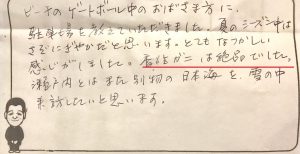 ビーチのゲートボール中のおばさま方に、
駐車場を教えていただきました。夏のシーズン中は
さぞにぎやかだと思います。とてもなつかしい
感じがしました。香住ガニは絶品でした。
瀬戸内とはまた別物の日本海を、雪の中
来訪したいと思います。